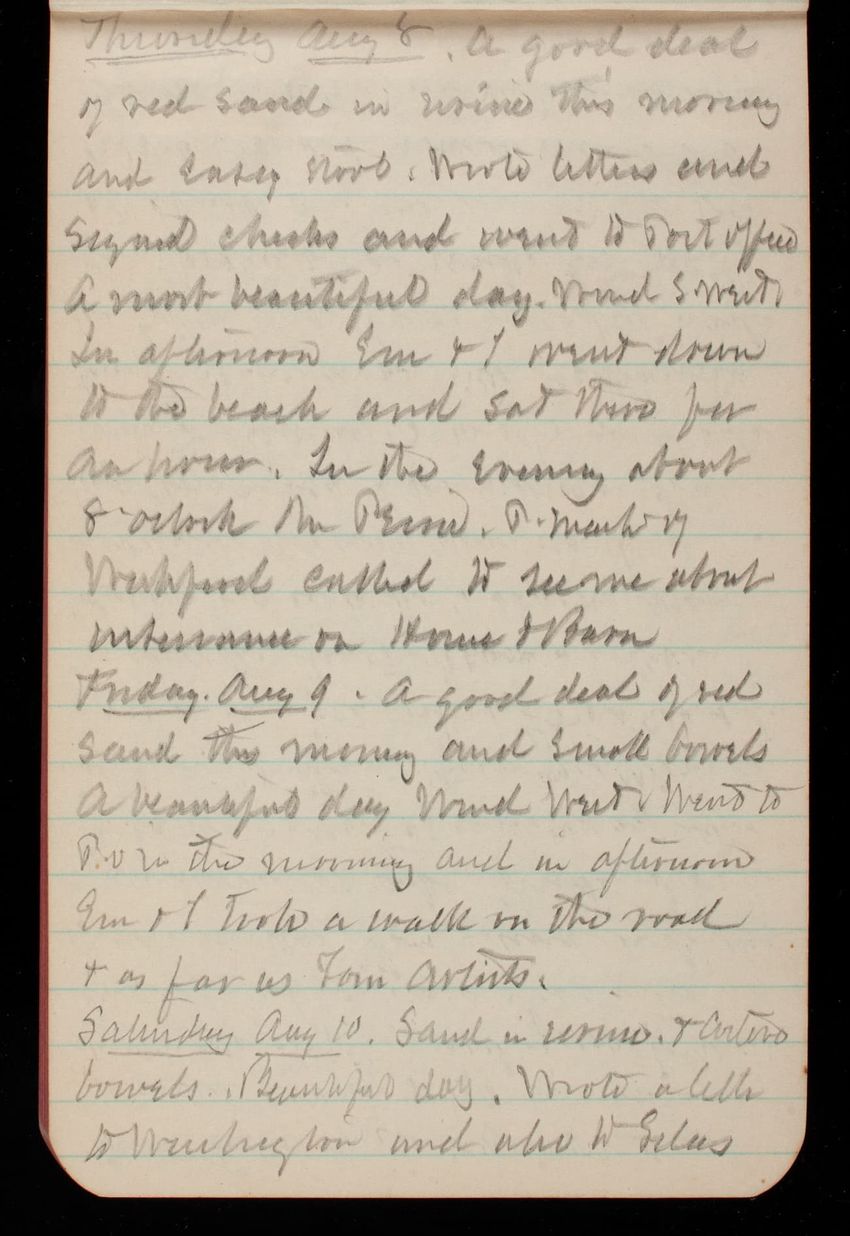 Thursday Aug 8. A good deal
of red sand in urine this morning
and easy stool. Wrote letters and
signed checks and went to Post office
A most beautiful day. Wind S West.
In afternoon Em & I went down
to the beach and sat there for
an hour. In the evening about
8 oclock P. of
called to see me about
insurance on House & Barn
Friday. Aug 9. A good deal of red
sand this morning and small bowels
A beautiful day Wind West. Went to
P.O in the morning and in afternoon
Em & I took a walk on the road
& as far as Tom
Saturday Aug 10. Sand in urine. & active
bowels. Beautiful day. Wrote a letter
to Washington and also to